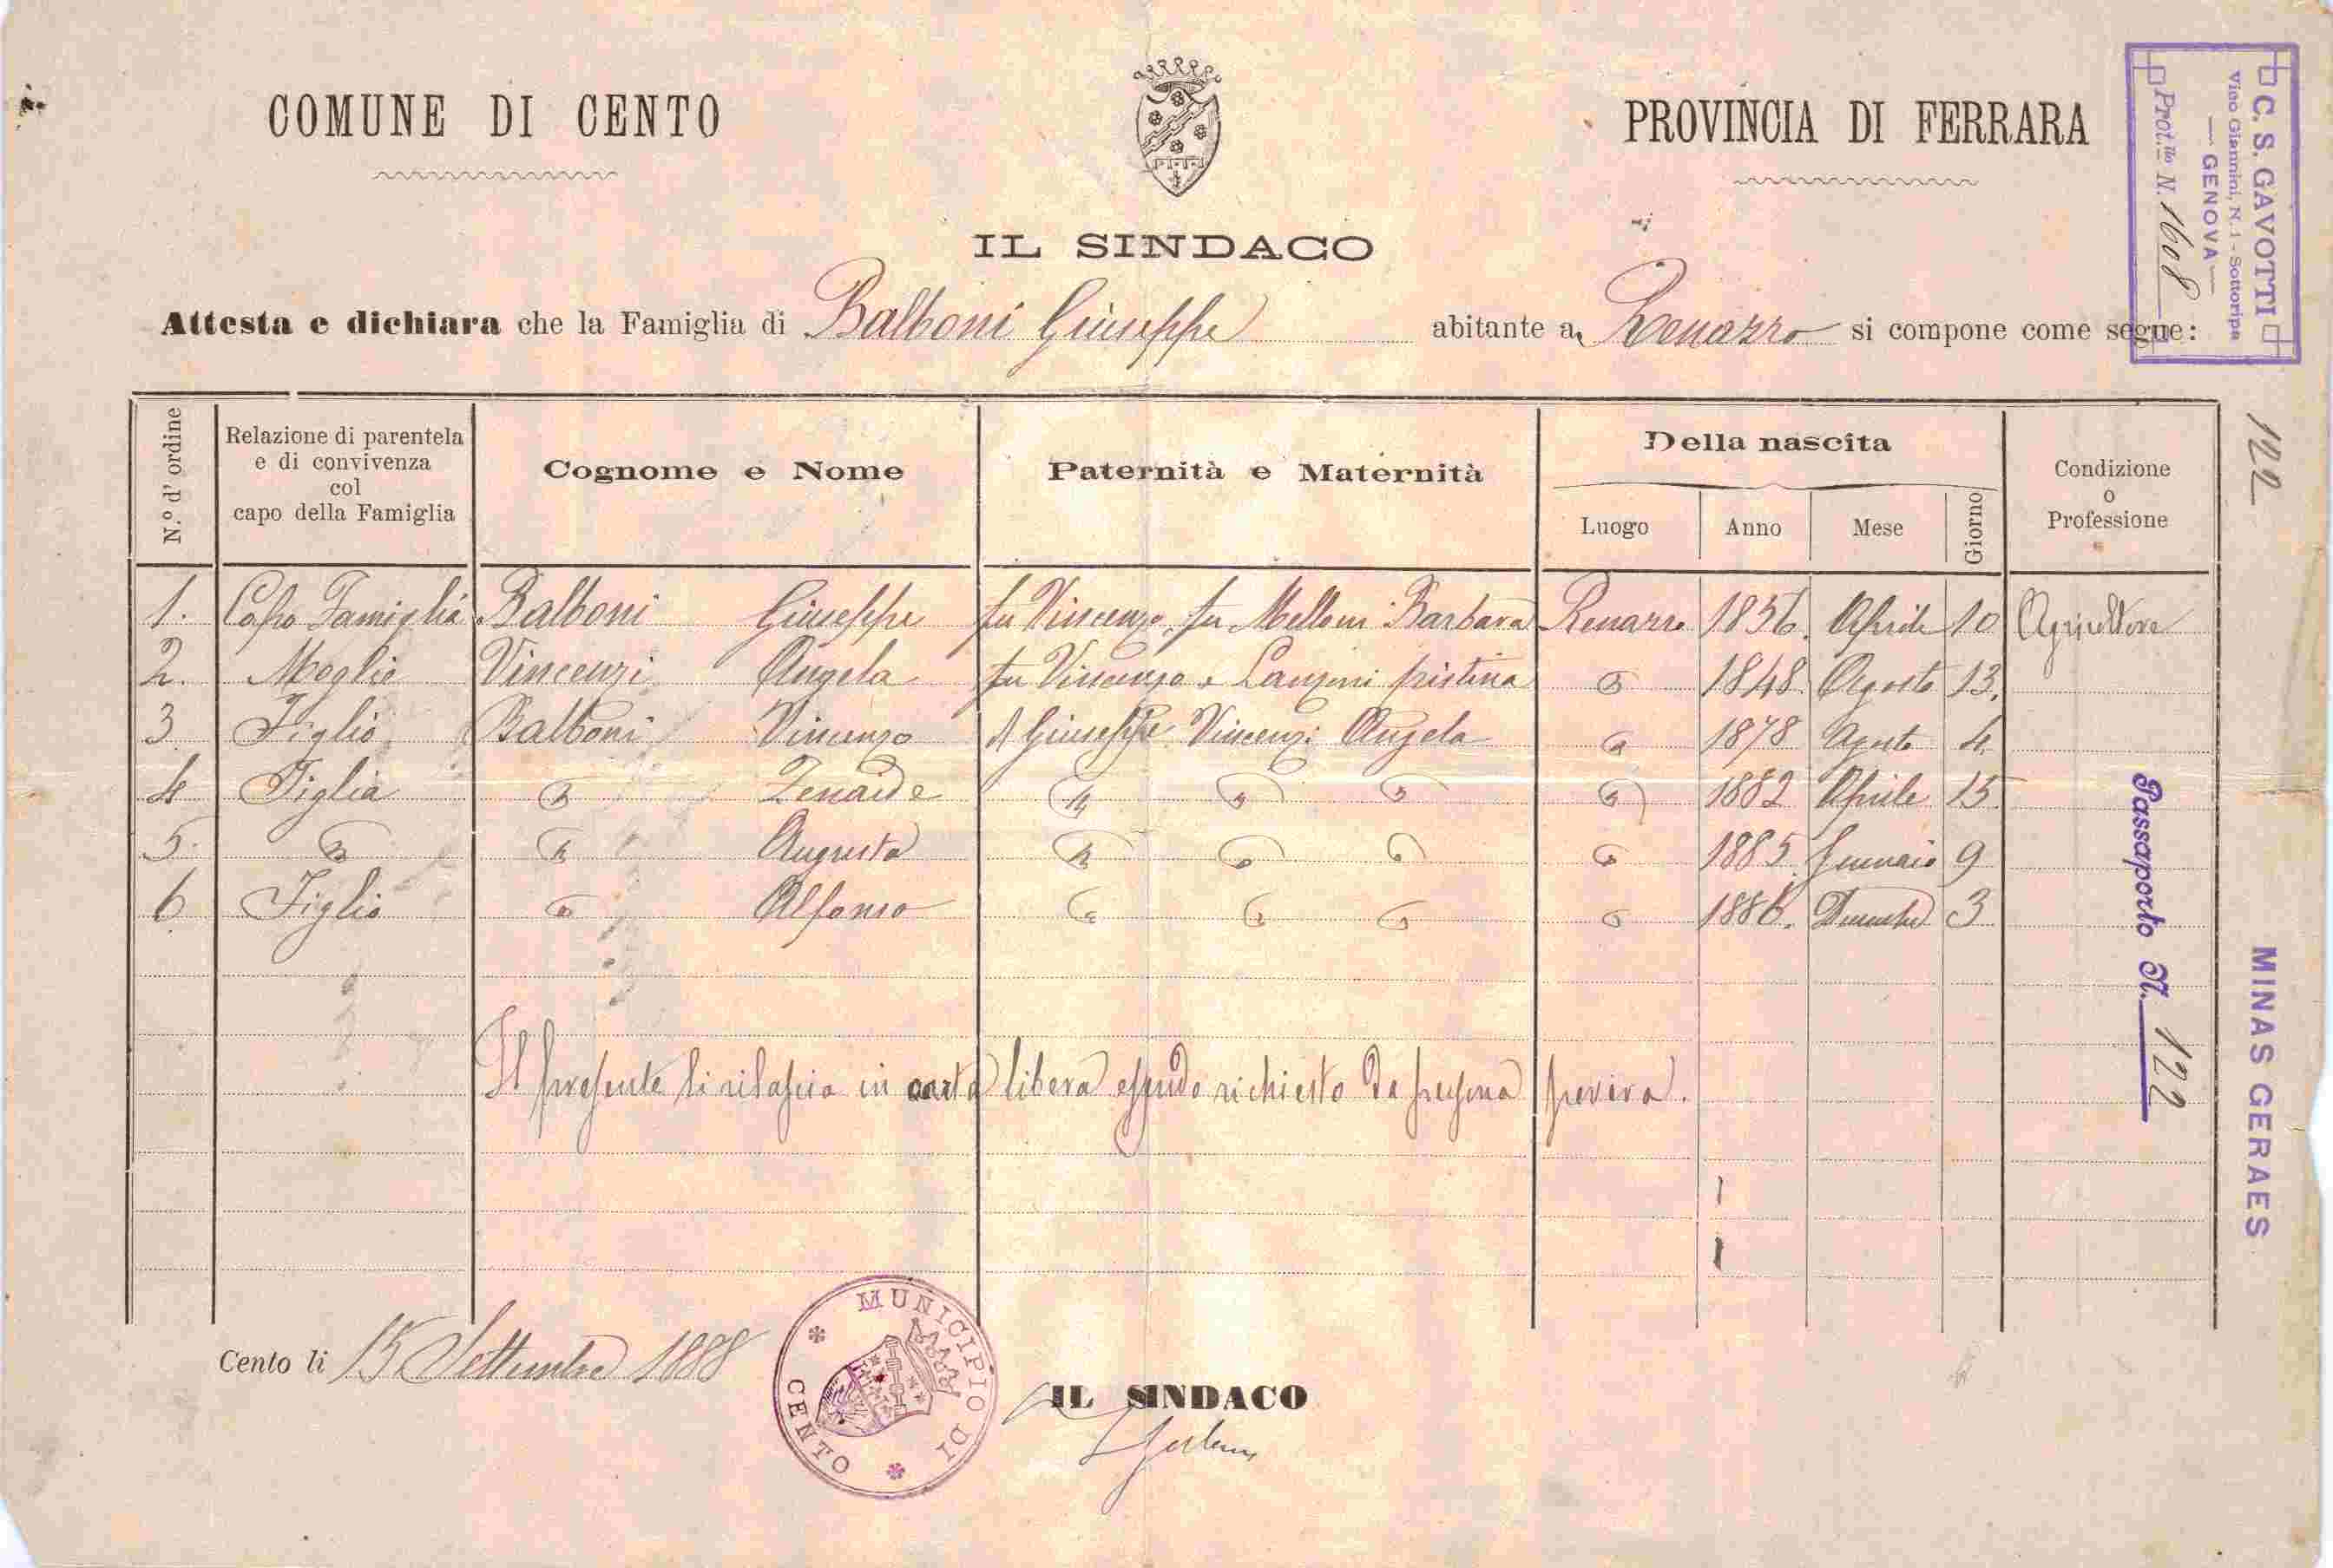 COMUNE DI CENTO
PROVINCIA DI FERRARA
C. S. GAVOTTI
Vico Giannini, N. 1 - Sottoripa
— GENOVA —
Prot.llo N. 1608
IL SINDACO
Attesta e dichiara che la Famiglia di Balboni Giuseppe abitante a Renazzo si compone come segue:
N.o d' ordine
Relazione di parentela
e di convivenza
col
capo della Famiglia
Cognome e Nome
Paternità e Maternità
Della nascita
Luogo
Anno
Mese
Giorno
Condizione
o
Professione
122
1. Capo Famiglia Balboni Giuseppe fu Vincenzo, fu Melloni Barbara Renazzo 1836. Aprile 10 Agricoltore
2. Moglie Vincenzi Angela fu Vincenzo e Lanzoni Cristina " 1848. Agosto 13.
3. Figlio Balboni Vincenzo di Giuseppe Vincenzi Angela " 1878 Agosto 4.
4 Figlia " Zenaide " " " " 1882 Aprile 15
5. " " Augusta " " " " 1885. Gennaio 9
6 Figlio " Alfonso " " " " 1886. Dicembre 3
Il presente si rilascia in carta libera essendo richiesto da persona povera.
Passaporto N. 122
MINAS GERAES
Cento li 15 Settembre 1888
MUNICIPIO DI CENTO
IL SINDACO